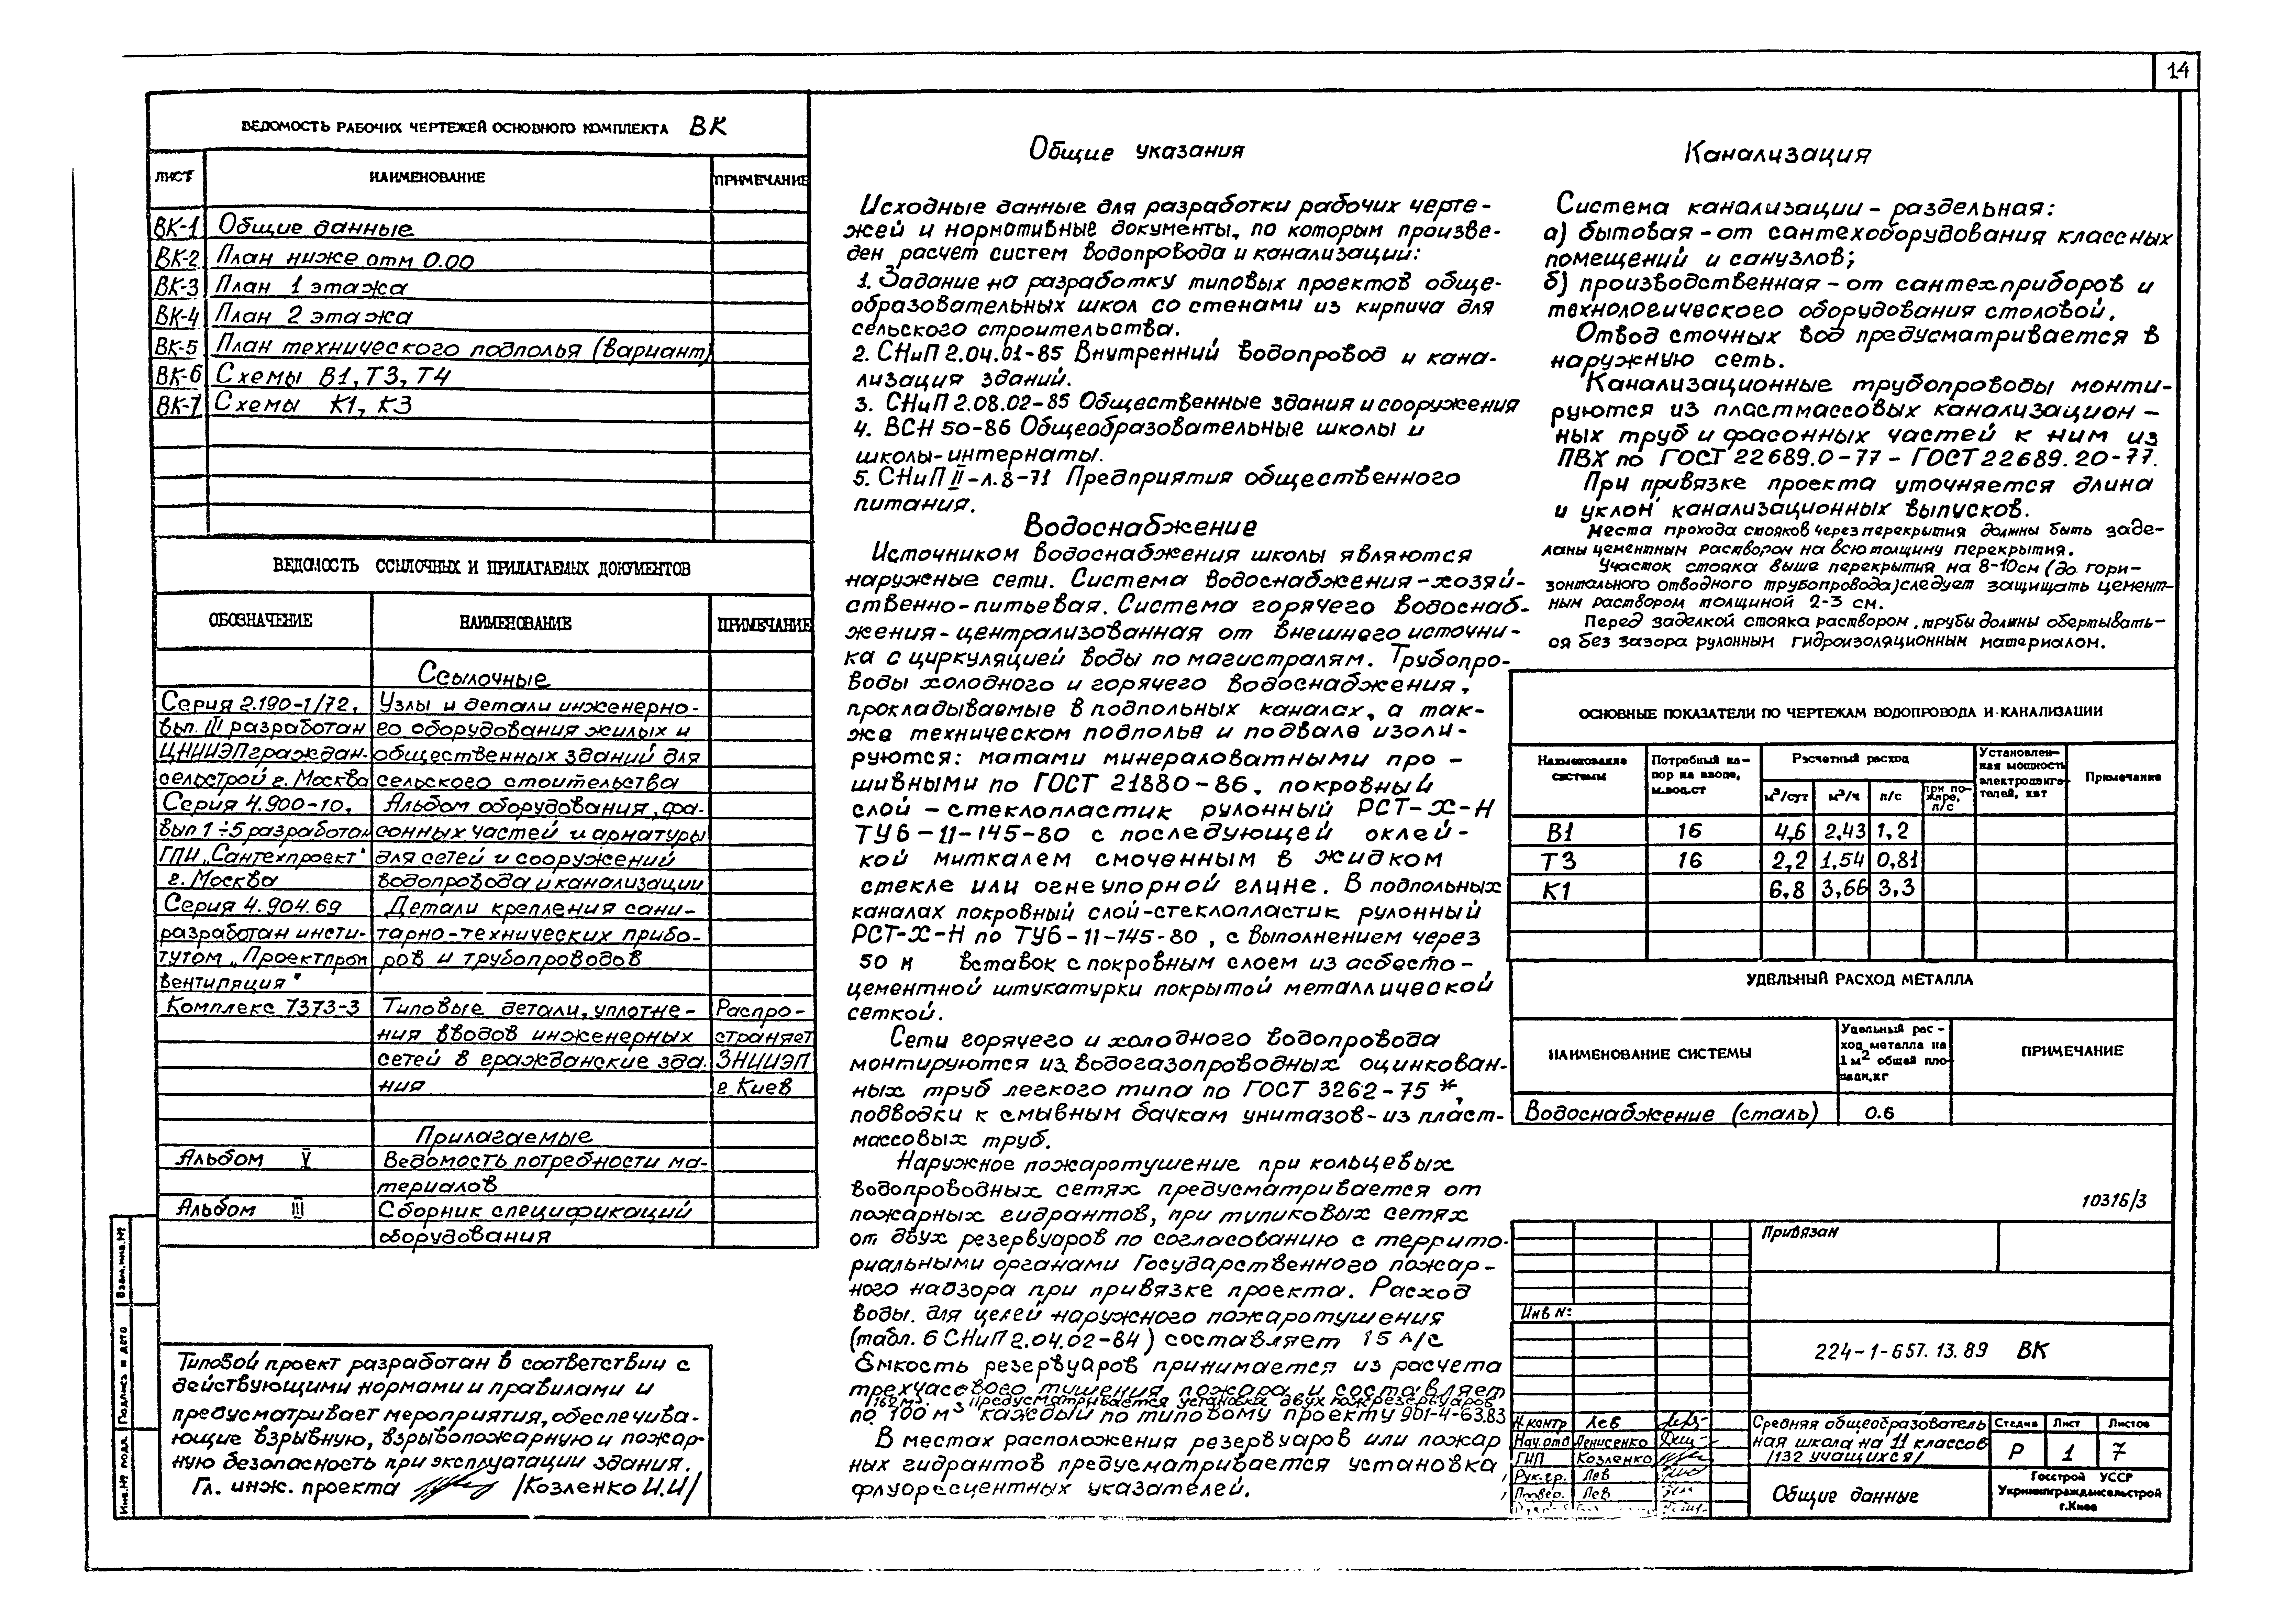 14
ВЕДОМОСТЬ РАБОЧИХ ЧЕРТЕЖЕЙ ОСНОВНОГО КОМПЛЕКТА ВК
ЛИСТ НАИМЕНОВАНИЕ ПРИМЕЧАНИЕ
ВК-1 Общие данные
ВК-2 План ниже отм 0.00
ВК-3 План 1 этажа
ВК-4 План 2 этажа
ВК-5 План технического подполья (вариант)
ВК-6 Схемы В1, Т3, Т4
ВК-7 Схемы К1, К3
ВЕДОМОСТЬ ССЫЛОЧНЫХ И ПРИЛАГАЕМЫХ ДОКУМЕНТОВ
ОБОЗНАЧЕНИЕ НАИМЕНОВАНИЕ ПРИМЕЧАНИЕ
Ссылочные
Серия 2.190-1/72, Узлы и детали инженерно-
вып. III разработан го оборудования жилых и
ЦНИИЭПграждан- общественных зданий для
сельстрой г. Москва сельского стоительства
Серия 4.900-10, Альбом оборудования, фа-
вып 1÷5 разработан сонных частей и арматуры
ГПИ „Сантехпроект" для сетей и сооружений
г. Москва водопровода и канализации
Серия 4.904.69 Детали крепления сани-
разработан инсти- тарно-технических прибо-
тутом „Проектпром ров и трубопроводов
вентиляция"
Комплекс 7373-3 Типовые детали, уплотне- Распро-
ния вводов инженерных страняет
сетей в гражданские зда. ЗНИИЭП
ния г Киев
Прилагаемые
Альбом V Ведомость потребности ма-
териалов
Альбом III Сборник спецификаций
оборудования
Типовой проект разработан в соответствии с
действующими нормами и правилами и
предусматривает мероприятия, обеспечива-
ющие взрывную, взрывопожарную и пожар-
ную безопасность при эксплуатации здания.
Гл. инж. проекта /Козленко И.И/
Взам.инв.№
Подпись и дата
Инв.№ подл.
Общие указания
Исходные данные для разработки рабочих черте-
жей и нормативные документы, по которым произве-
ден расчет систем водопровода и канализации:
1. Задание на разработку типовых проектов обще-
образовательных школ со стенами из кирпича для
сельского строительства.
2. СНиП 2.04.01-85 Внутренний водопровод и кана-
лизация зданий.
3. СНиП 2.08.02-85 Общественные здания и сооружения
4. ВСН 50-86 Общеобразовательные школы и
школы-интернаты.
5. СНиП II-л.8-71 Предприятия общественного
питания.
Водоснабжение
Источником водоснабжения школы являются
наружные сети. Система водоснабжения-хозяй-
ственно-питьевая. Система горячего водоснаб-
жения-централизованная от внешнего источни-
ка с циркуляцией воды по магистралям. Трубопро-
воды холодного и горячего водоснабжения,
прокладываемые в подпольных каналах, а так-
же техническом подполье и подвале изоли-
руются: матами минераловатными про-
шивными по ГОСТ 21880-86, покровный
слой - стеклопластик рулонный РСТ-Х-Н
ТУ6-11-145-80 с последующей оклей-
кой миткалем смоченным в жидком
стекле или огнеупорной глине. В подпольных
каналах покровный слой-стеклопластик рулонный
РСТ-Х-Н по ТУ6-11-145-80, с выполнением через
50 м вставок с покровным слоем из асбесто-
цементной штукатурки покрытой металлической
сеткой.
Сети горячего и холодного водопровода
монтируются из водогазопроводных оцинкован-
ных труб легкого типа по ГОСТ 3262-75*,
подводки к смывным бачкам унитазов-из пласт-
массовых труб.
Наружное пожаротушение при кольцевых
водопроводных сетях предусматривается от
пожарных гидрантов, при тупиковых сетях
от двух резервуаров по согласованию с террито-
риальными органами Государственного пожар-
ного надзора при привязке проекта. Расход
воды для целей наружного пожаротушения
(табл. 6 СНиП 2.04.02-84) составляет 15 л/с
Емкость резервуаров принимается из расчета
трехчасового тушения пожара и составляет
162 м³. Предусматривается установка двух пожрезервуаров
по 100 м³ каждый по типовому проекту 901-4-63.83
В местах расположения резервуаров или пожар
ных гидрантов предусматривается установка
флуоресцентных указателей.
Канализация
Система канализации - раздельная:
а) бытовая - от сантехоборудования классных
помещений и санузлов;
б) производственная - от сантехприборов и
технологического оборудования столовой.
Отвод сточных вод предусматривается в
наружную сеть.
Канализационные трубопроводы монти-
руются из пластмассовых канализацион-
ных труб и фасонных частей к ним из
ПВХ по ГОСТ 22689.0-77 - ГОСТ 22689.20-77.
При привязке проекта уточняется длина
и уклон канализационных выпусков.
Места прохода стояков через перекрытия должны быть заде-
ланы цементным раствором на всю толщину перекрытия.
Участок стояка выше перекрытия на 8-10см (до гори-
зонтального отводного трубопровода) следует защищать цемент-
ным раствором толщиной 2-3 см.
Перед заделкой стояка раствором, трубы должны обертывать-
ся без зазора рулонным гидроизоляционным материалом.
ОСНОВНЫЕ ПОКАЗАТЕЛИ ПО ЧЕРТЕЖАМ ВОДОПРОВОДА И КАНАЛИЗАЦИИ
Наименование системы Потребный на- пор на вводе, м.вод.ст Расчетный расход Установлен- ная мощность электродвига- телей, квт Примечание
м³/сут м³/ч л/с при по- жаре, л/с
В1 16 4,6 2,43 1,2
Т3 16 2,2 1,54 0,81
К1 6,8 3,66 3,3
УДЕЛЬНЫЙ РАСХОД МЕТАЛЛА
НАИМЕНОВАНИЕ СИСТЕМЫ Удельный рас- ход металла на 1 м² общей пло- щади, кг ПРИМЕЧАНИЕ
Водоснабжение (сталь) 0.6
10316/3
Привязан
Инв №:
224-1-657.13.89 ВК
Н.контр Лев
Нач.отд Денисенко
ГИП Козленко
Рук.гр. Лев
Провер. Лев
Средняя общеобразователь
ная школа на 11 классов
/132 учащихся/
Стадия Лист Листов
Р 1 7
Общие данные
Госстрой УССР
Укрниипграждансельстрой
г.Киев